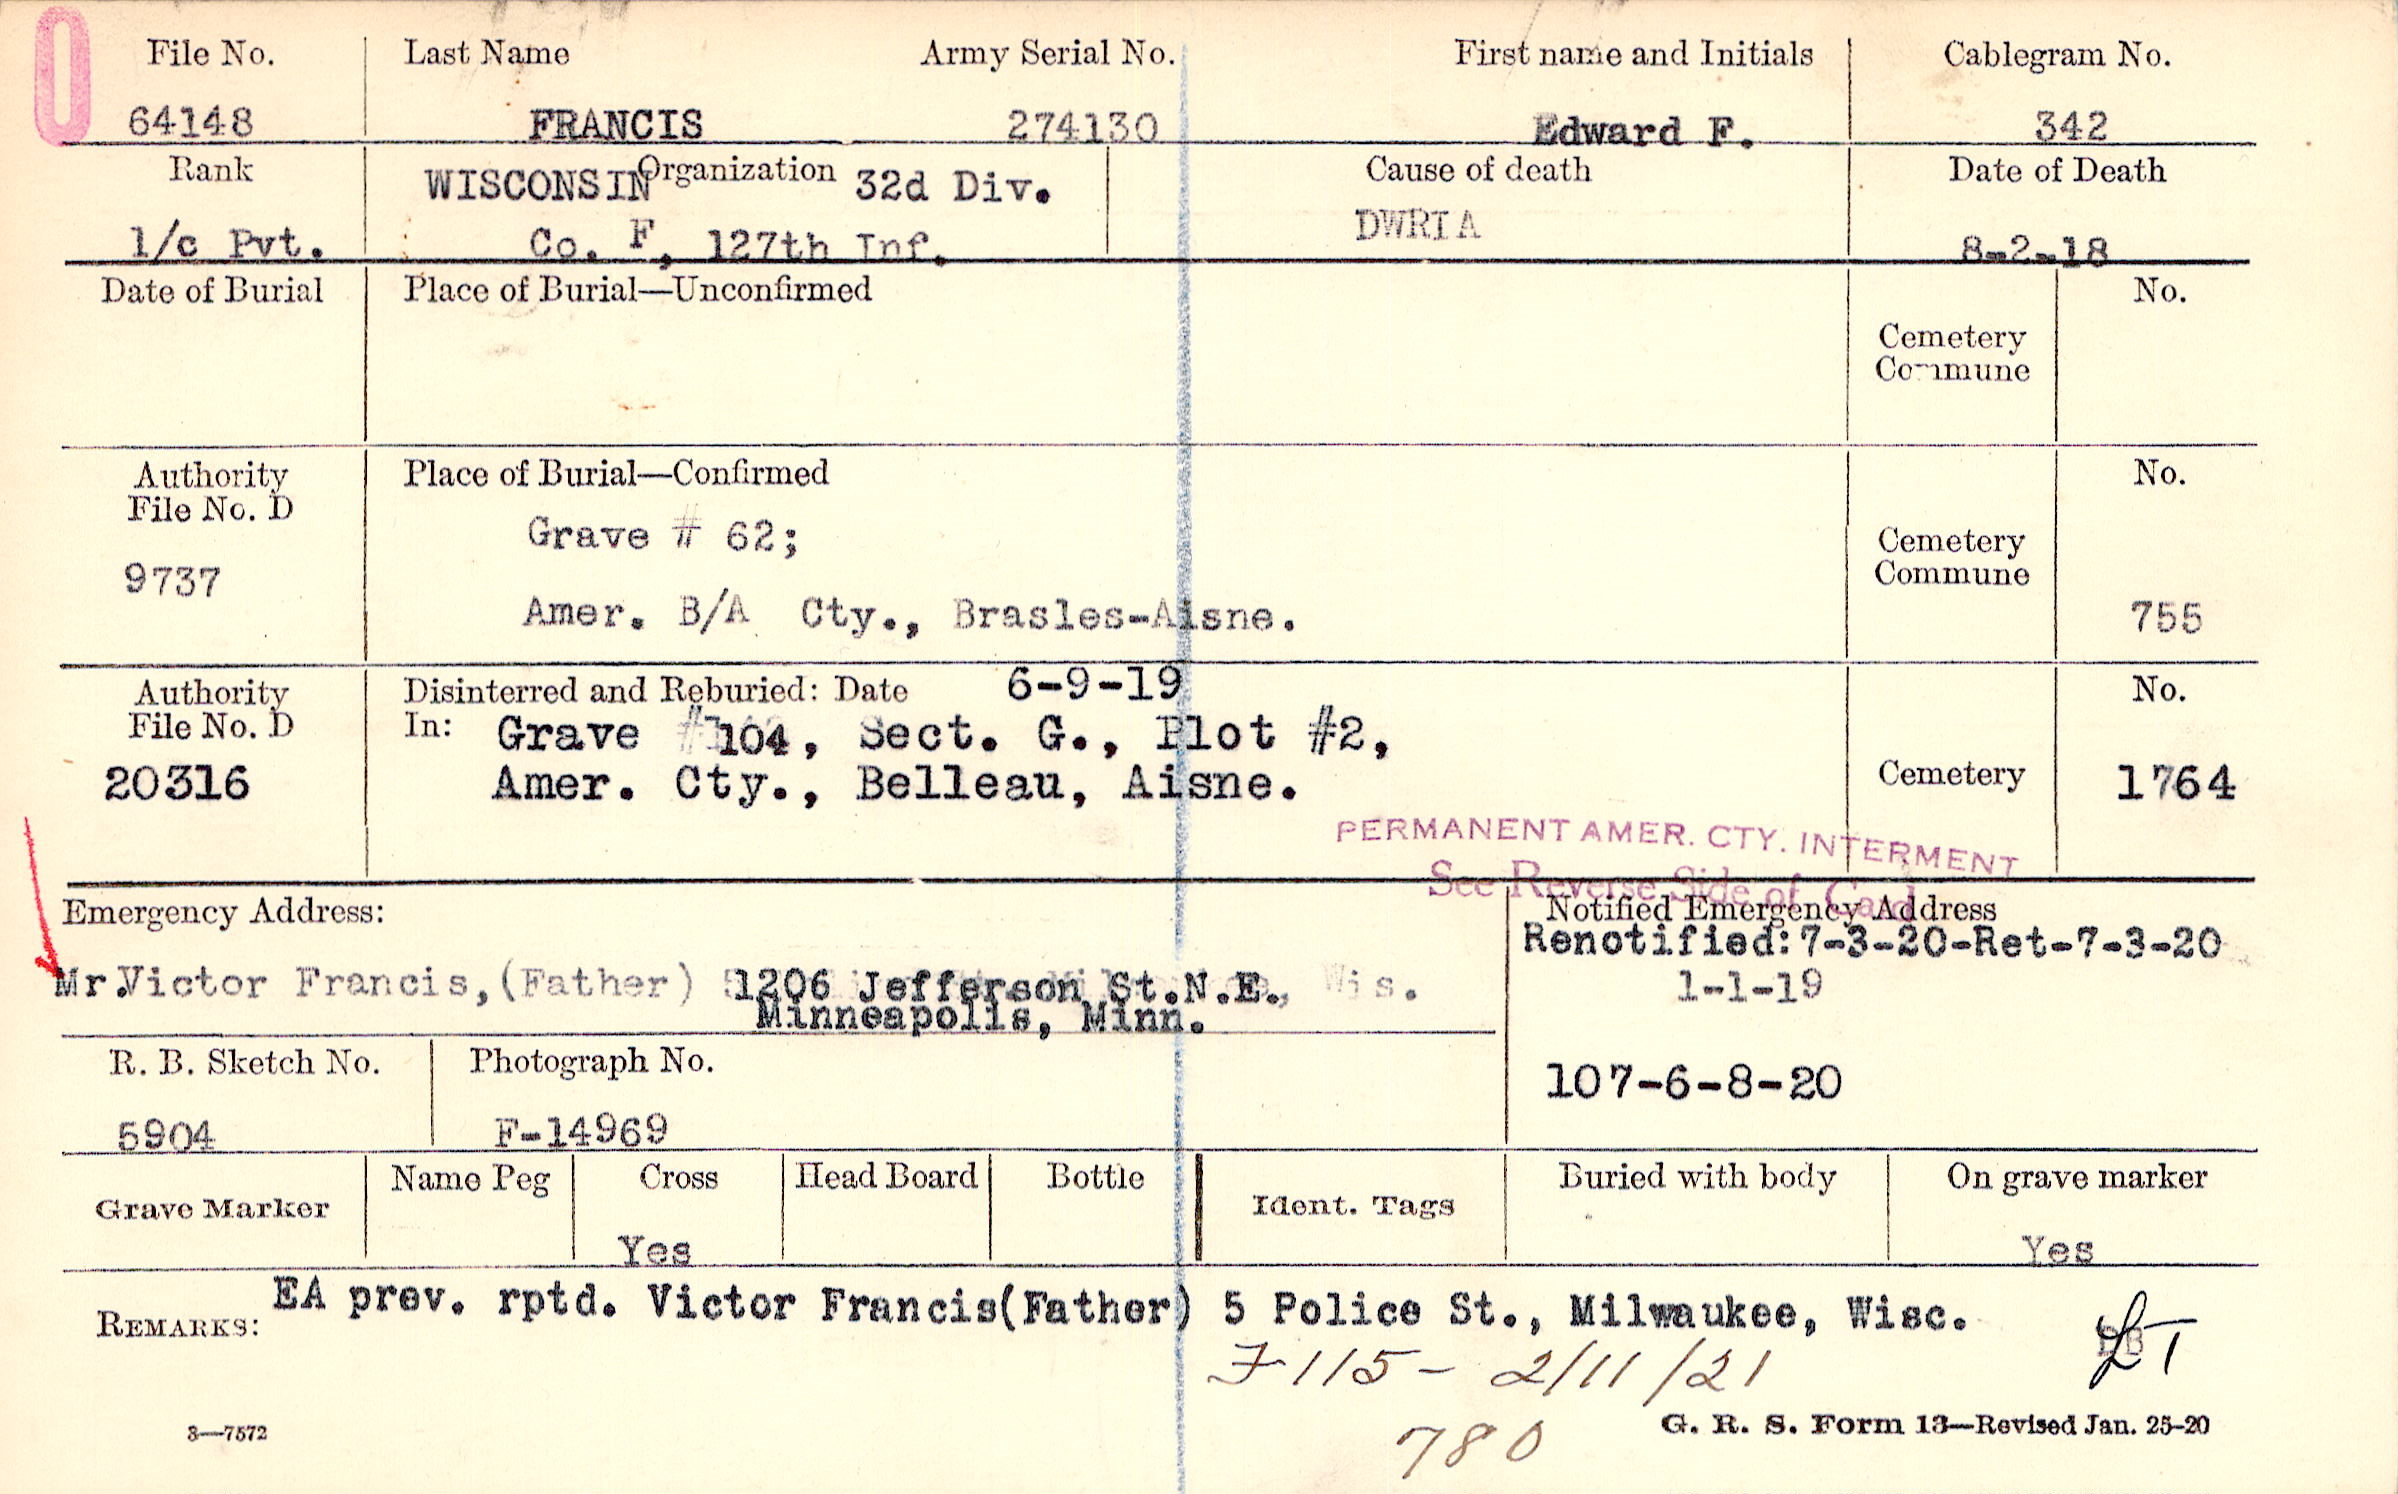 File No. Last Name Army Serial No. First name and Initials Cablegram No.
64148 FRANCIS 274130 Edward F. 342
Rank Organization Cause of death Date of Death
WISCONSIN 32d Div.
1/c Pvt. Co. F, 127th Inf. DWRIA 8-2-18
Date of Burial Place of Burial—Unconfirmed No.
Cemetery
Commune
Authority Place of Burial—Confirmed No.
File No. D
Grave # 62;
Cemetery
Commune
9737
Amer. B/A Cty., Brasles-Aisne. 755
Authority Disinterred and Reburied: Date 6-9-19 No.
File No. D In: Grave #104, Sect. G., Plot #2,
20316 Amer. Cty., Belleau, Aisne. Cemetery 1764
PERMANENT AMER. CTY. INTERMENT
See Reverse Side of Card
Emergency Address: Notified Emergency Address
Renotified:7-3-20-Ret-7-3-20
Mr.Victor Francis,(Father) 1206 Jefferson St.N.E., Wis. 1-1-19
Minneapolis, Minn.
R. B. Sketch No. Photograph No.
107-6-8-20
5904 F-14969
Grave Marker Name Peg Cross Head Board Bottle Ident. Tags Buried with body On grave marker
Yes Yes
REMARKS: EA prev. rptd. Victor Francis(Father) 5 Police St., Milwaukee, Wisc.
LT
F115- 2/11/21
780
3—7572 G. R. S. Form 13—Revised Jan. 25-20